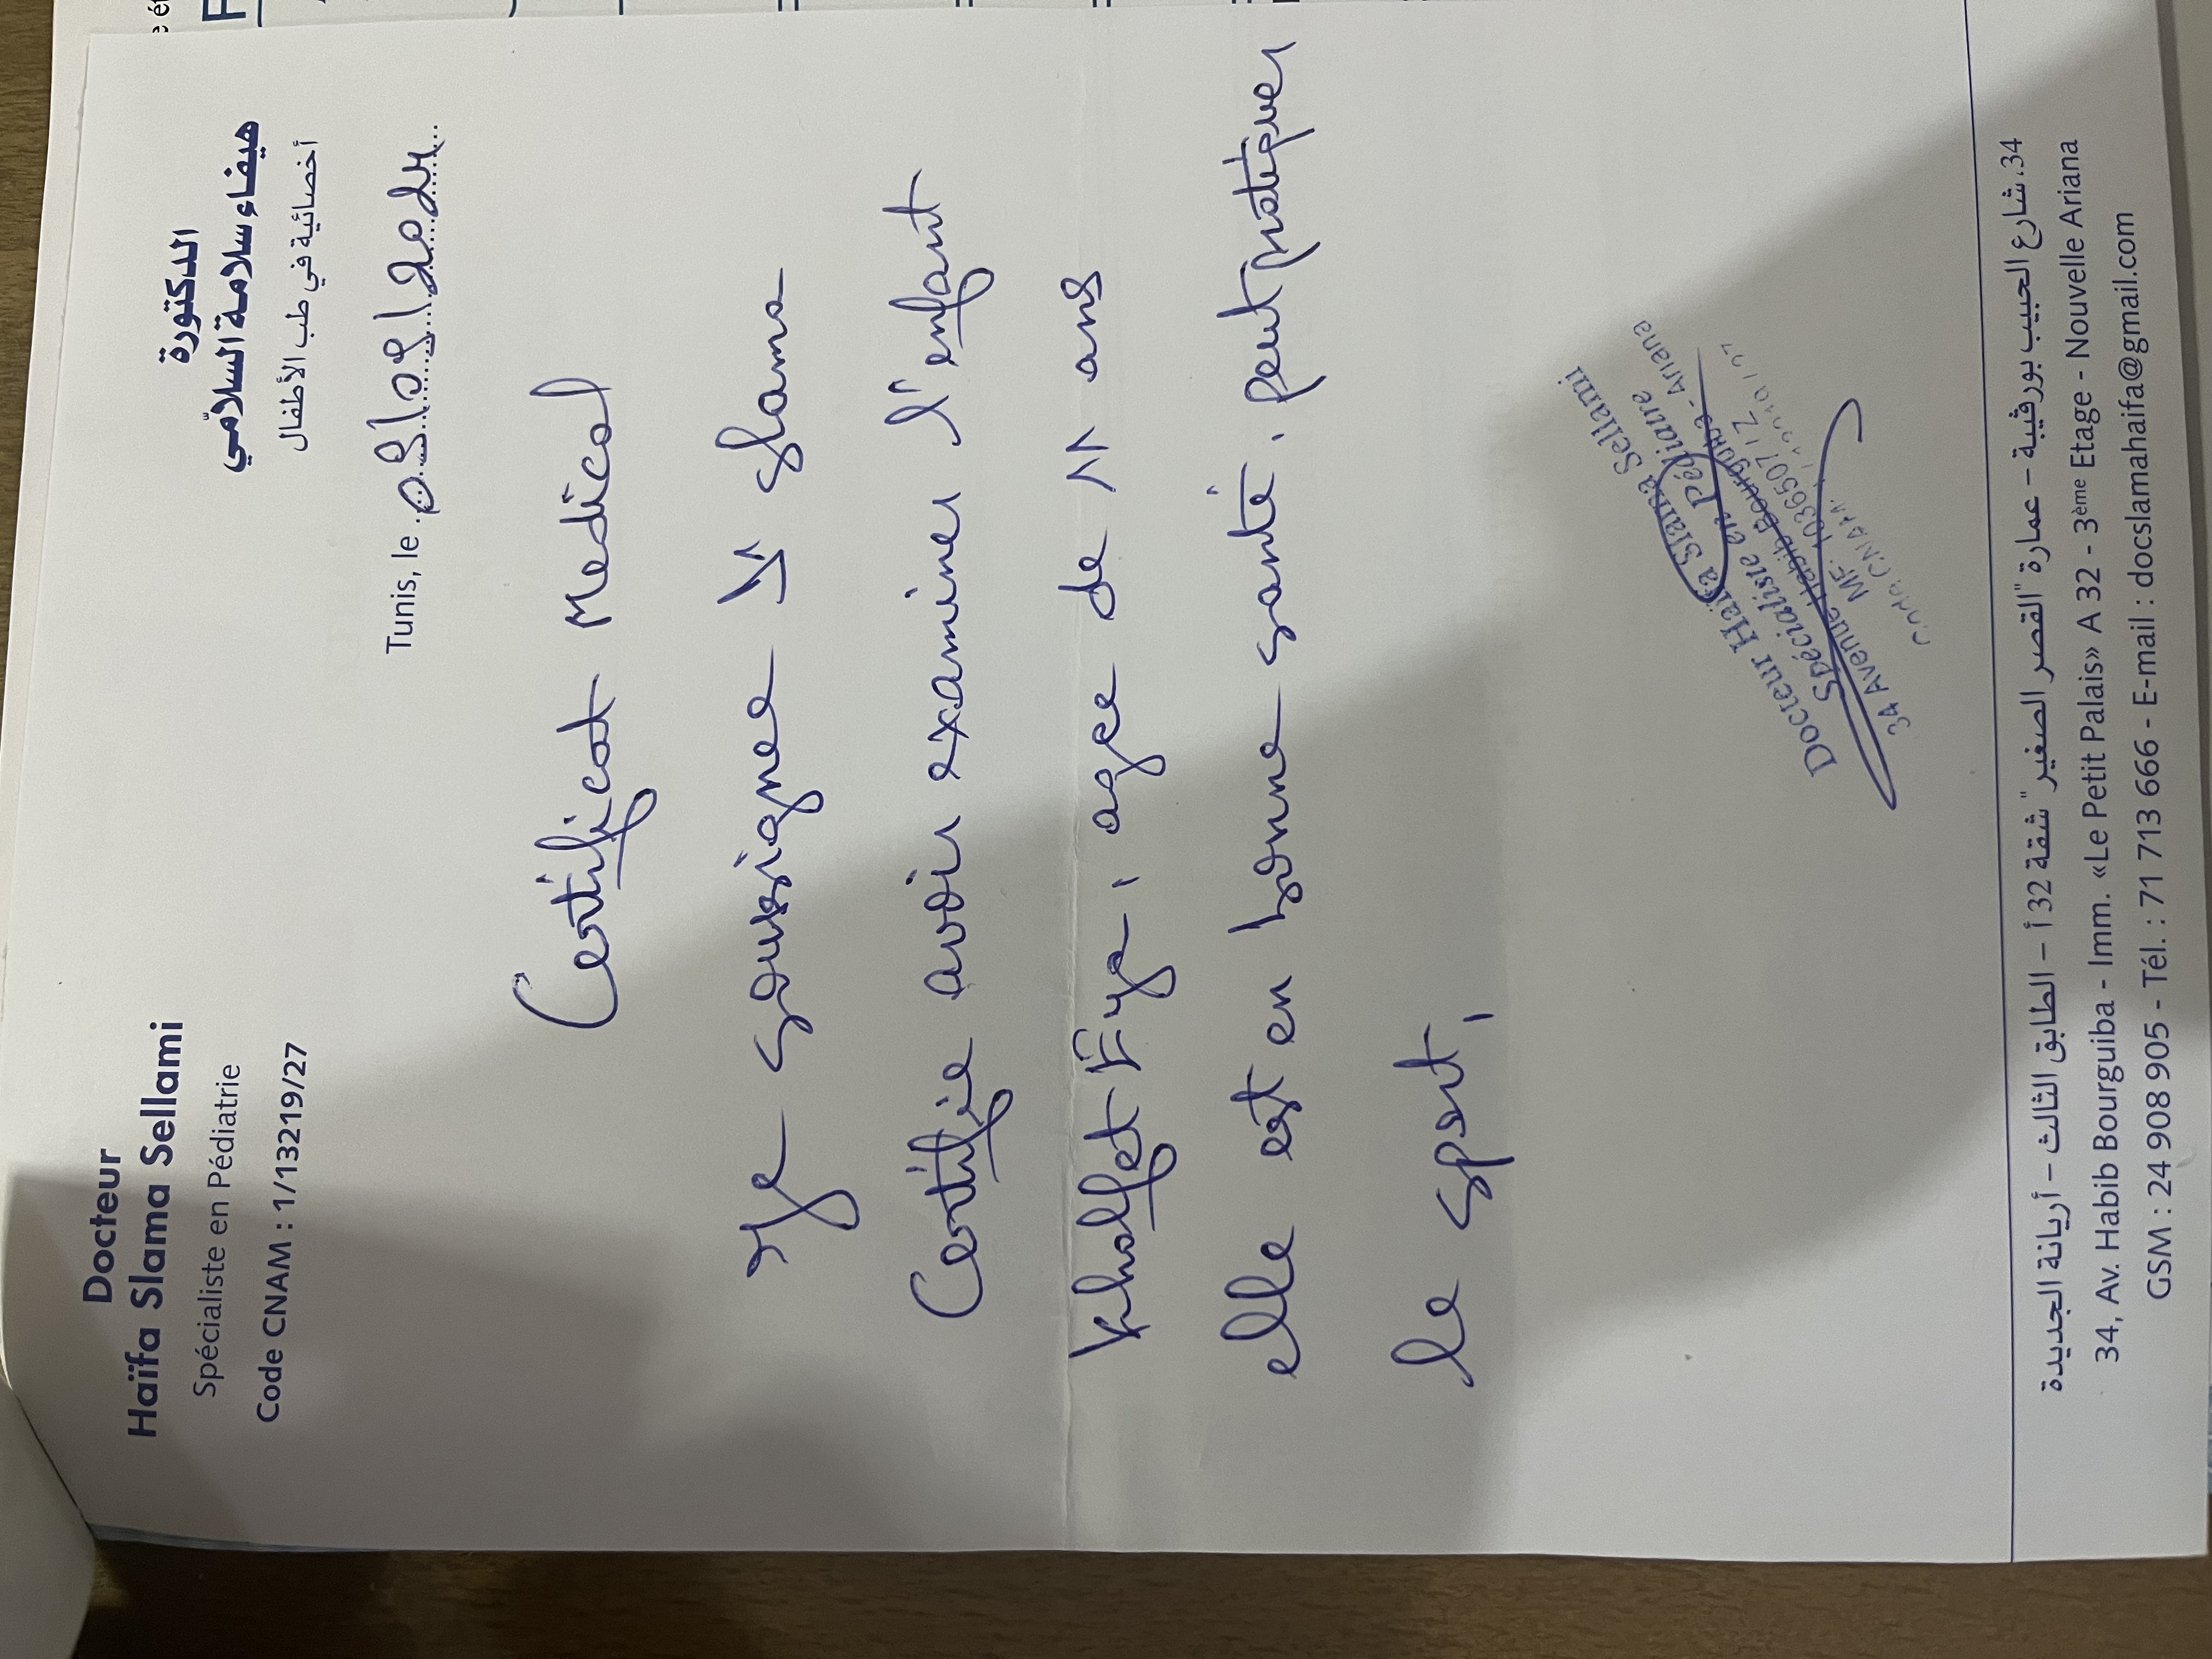 Docteur
Haïfa Slama Sellami
Spécialiste en Pédiatrie
Code CNAM : 1/13219/27
الدكتورة
هيفاء سلامة السلامّي
أخصائية في طب الأطفال
Tunis, le
Certificat Medical
Je soussigne Dr Slama
Certifie avoir examiner l'enfant
Khalfet Eya, agee de 11 ans
elle est en bonne santé, peut pratiquer
le sport,
Docteur Haïfa Slama Sellami
Spécialiste en Pédiatrie
34 Avenue Habib Bourguiba - Ariana
MF: 1036507
34، شارع الحبيب بورقيبة – عمارة "القصر الصغير" شقة 32 أ – الطابق الثالث – أريانة الجديدة
34, Av. Habib Bourguiba - Imm. «Le Petit Palais» A 32 - 3ème Etage - Nouvelle Ariana
GSM : 24 908 905 - Tél. : 71 713 666 - E-mail : docslamahaifa@gmail.com